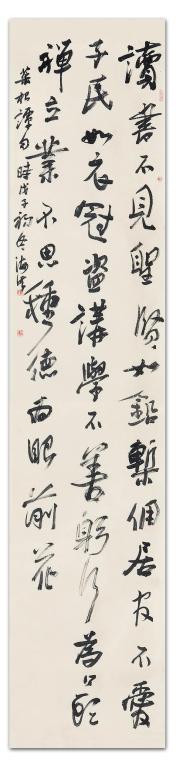 讀書不見聖賢如鉛槧傭居官不愛
子民如衣冠盜講學不善躬行為口頭
禪立業不思種德為眼前花
菜根譚句時戊子初冬海